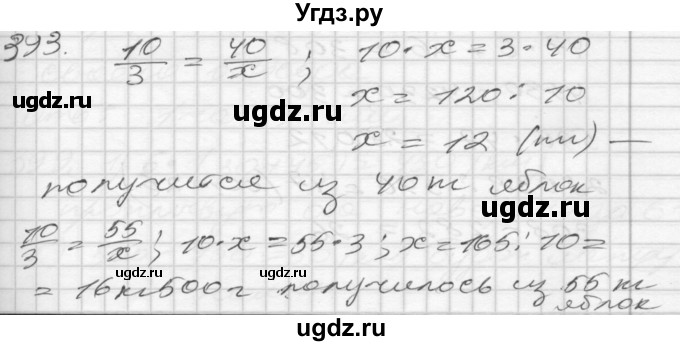 Угдз.ру
393. 10/3 = 40/x ; 10 · x = 3 · 40
x = 120 : 10
x = 12 (кг) —
получится из 40 кг яблок
10/3 = 55/x ; 10 · x = 55 · 3 ; x = 165 : 10 =
= 16 кг 500 г получилось из 55 кг
яблок
ugdz.ru
ugdz.ru
ugdz.ru
ugdz.ru
ugdz.ru
ugdz.ru
ugdz.ru
ugdz.ru